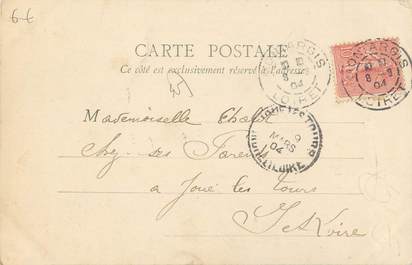 6-6
CARTE POSTALE
Ce côté est exclusivement réservé à l'adresse
MONTARGIS
8 04
LOIRET
MONTARGIS
8 04
LOIRET
JOUÉ-LES-TOURS
9
MARS
04
INDRE-ET-LOIRE
Mademoiselle
Chez ses Parents
a Joué les tours
I et Loire